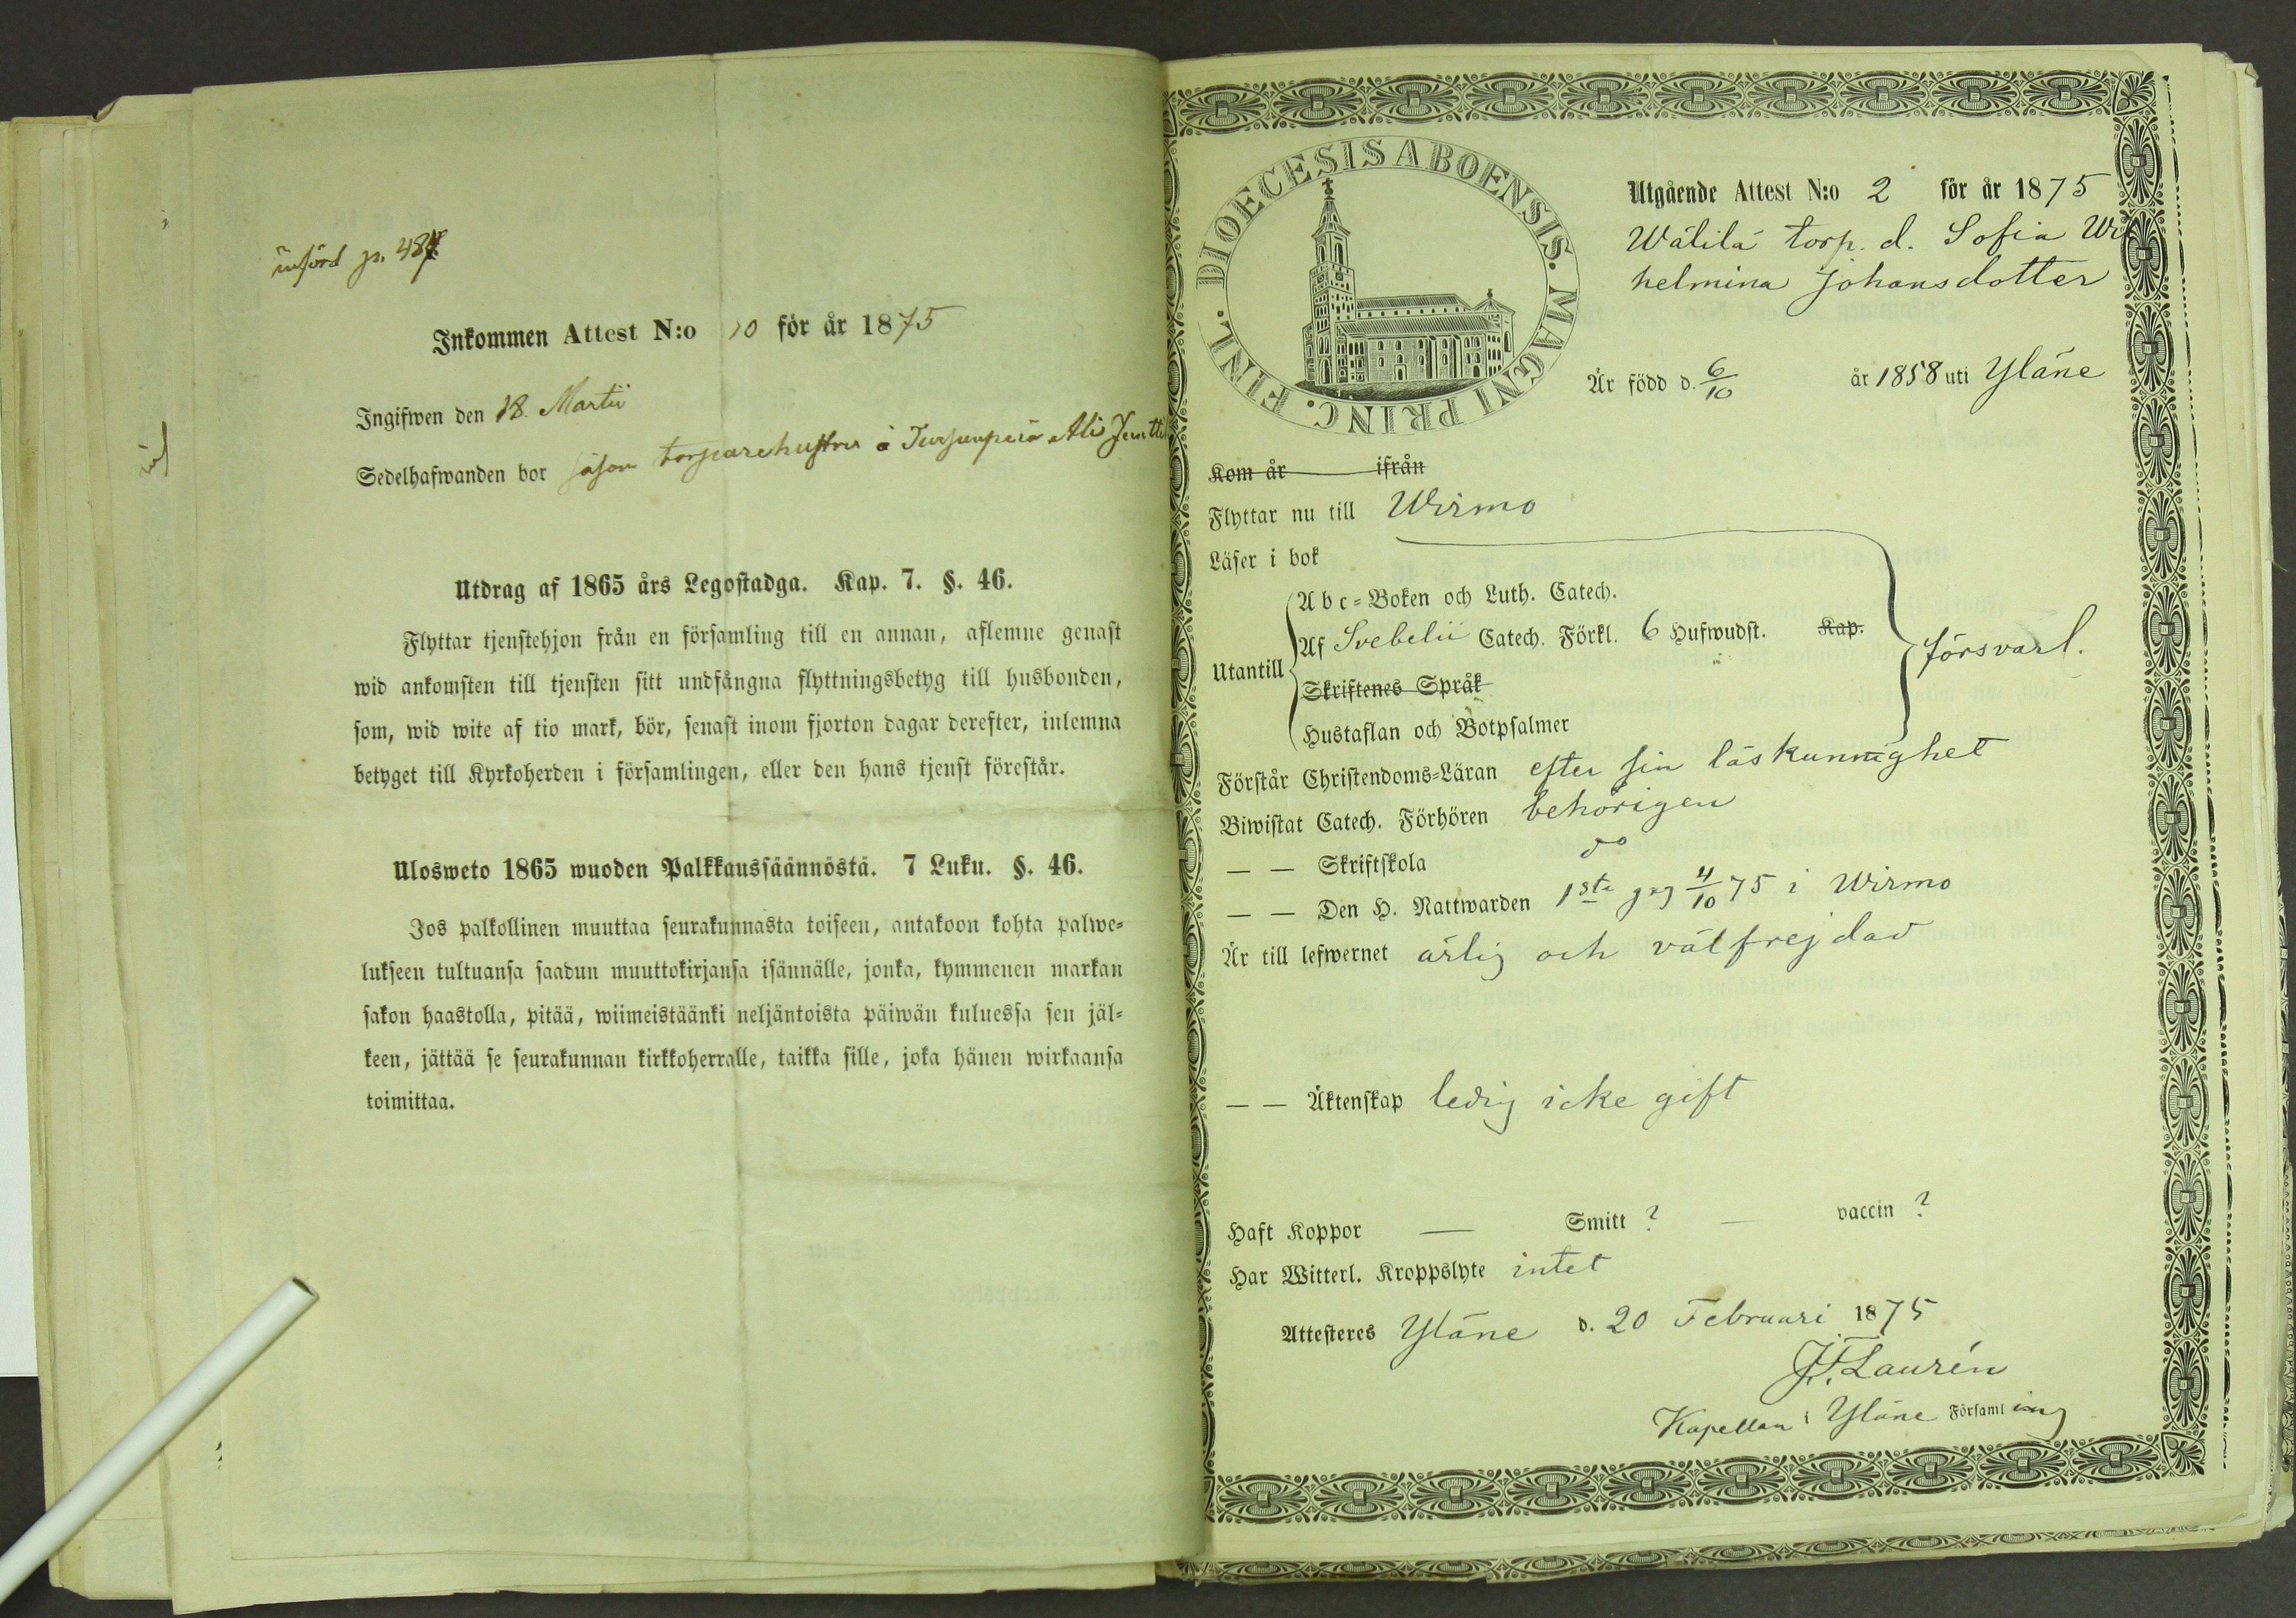 införd p. 487
Inkommen Attest N:o 10 för år 1875
Ingifwen den 18. Martii
Sedelhafwanden bor såsom torparehustru å
Utdrag af 1865 års Legostadga. Kap. 7. §. 46.
Flyttar tjenstehjon från en församling till en annan, aflemne genast
wid ankomsten till tjensten sitt undfångna flyttningsbetyg till husbonden,
som, wid wite af tio mark, bör, senast inom fjorton dagar derefter, inlemna
betyget till Kyrkoherden i församlingen, eller den hans tjenst förestår.
Ulosweto 1865 wuoden Palkkaussäännöstä. 7 Luku. §. 46.
Jos palkollinen muuttaa seurakunnasta toiseen, antakoon kohta palwe-
lukseen tultuansa saadun muuttokirjansa isännälle, jonka, kymmenen markan
sakon haastolla, pitää, wiimeistäänki neljäntoista päiwän kuluessa sen jäl-
keen, jättää se seurakunnan kirkkoherralle, taikka sille, joka hänen wirkaansa
toimittaa.
FINL. DIOECESIS ABOENSIS. MAGNI PRINC.
Utgående Attest N:o 2 för år 1875
Wälilä torp. d. Sofia Wil
helmina Johansdotter
Är född d. 6/10 år 1858 uti Yläne
Kom år ifrån
Flyttar nu till Wirmo
Läser i bok
Utantill
Abc-Boken och Luth. Catech.
Af Svebelii Catech. Förkl. 6 Hufwudst. Kap.
Skriftenes Språk
Hustaflan och Botpsalmer
försvarl.
Förstår Christendoms-Läran efter sin läskunnighet
Biwistat Catech. Förhören behörigen
— — Skriftskola do
— — Den H. Nattwarden 1sta gng 4/10 75 i Wirmo
Är till lefwernet ärlig och välfrejdad
— — Äktenskap ledig icke gift
Haft Koppor — Smitt ? — vaccin ?
Har Witterl. Kroppslyte intet
Attesteres Yläne d. 20 Februari 1875
J. F. Laurén
Kapellan i Yläne Församl ing